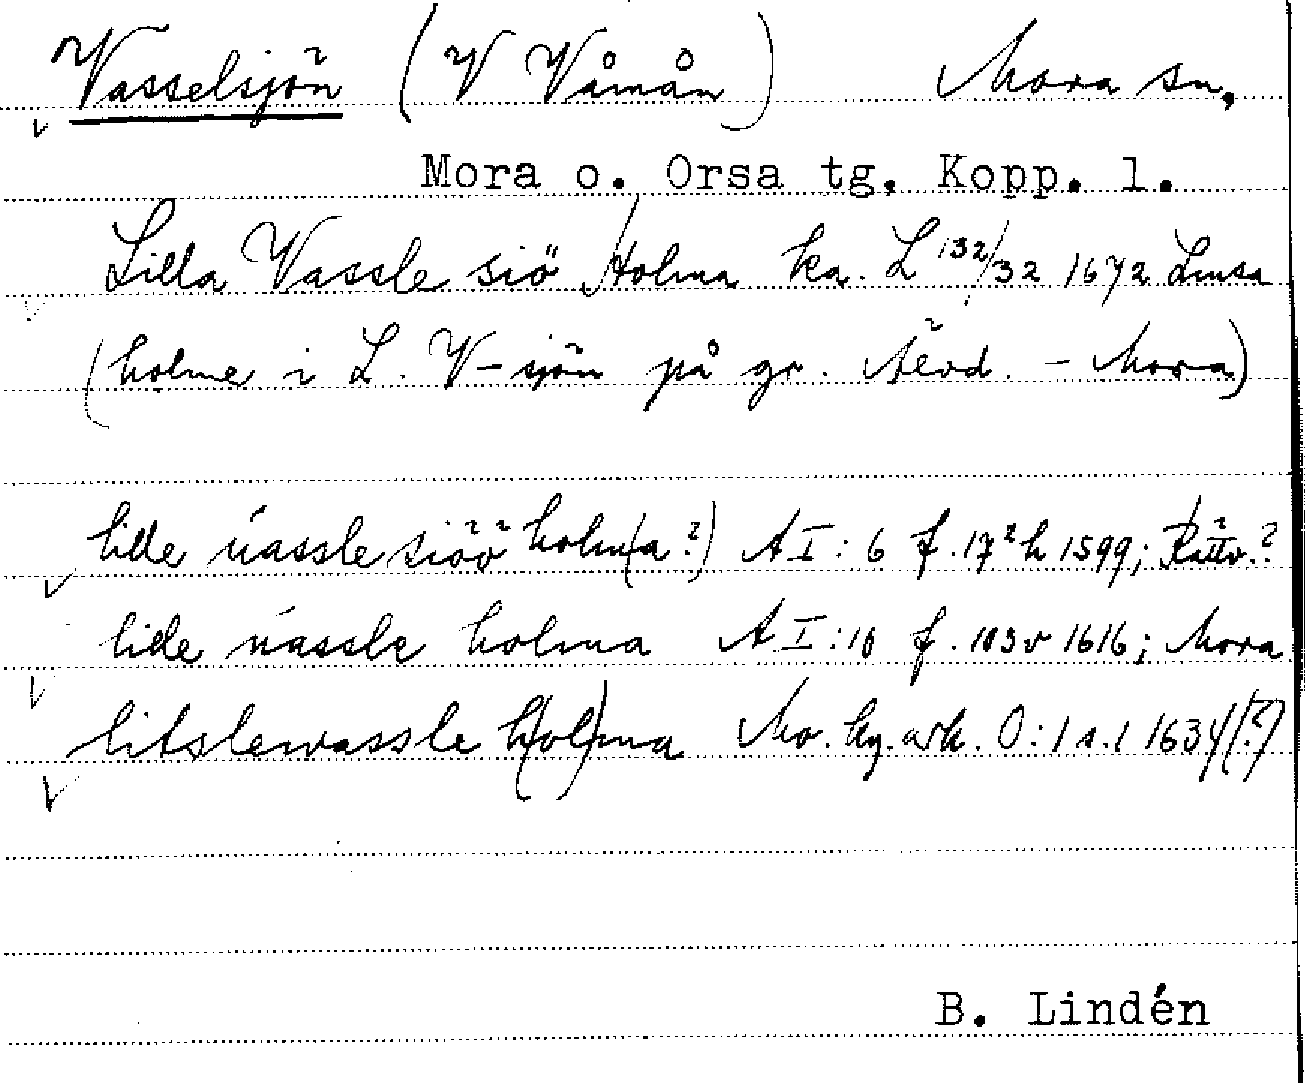 Vasselsjön (V Våmån) Mora sn,
Mora o. Orsa tg. Kopp. l.
Lilla Vassle siö Holma ka. L 132/32 1672 Limsa
(holme i L. V-sjön på gr. Älvd. - Mora)
lille úassle siöö holm(a?) A I: 6 f. 172 h 1599; Rättv.?
lille úassle holma A I: 10 f. 103v 1616; Mora
litslewassle h(ol)ma Mo. ky. ark. O: 1 s. 1 1634(?)
B. Lindén